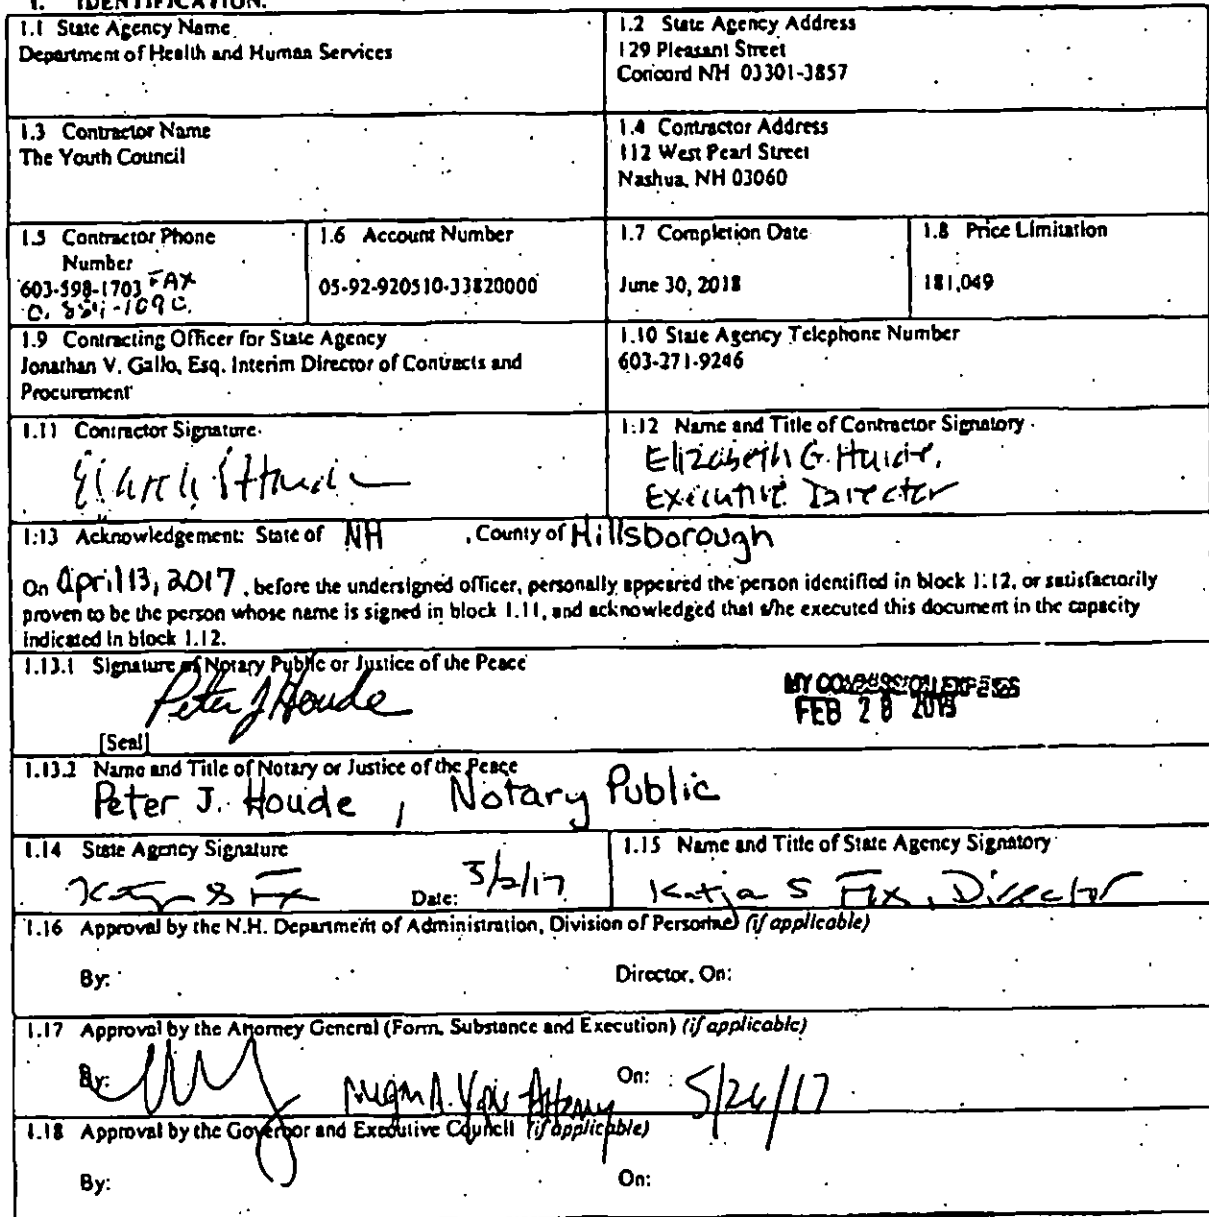 1. IDENTIFICATION.
1.1 State Agency Name
Department of Health and Human Services
1.2 State Agency Address
129 Pleasant Street
Concord NH 03301-3857
1.3 Contractor Name
The Youth Council
1.4 Contractor Address
112 West Pearl Street
Nashua, NH 03060
1.5 Contractor Phone
Number
603-598-1703 FAX
1.6 Account Number
05-92-920510-33820000
1.7 Completion Date
June 30, 2018
1.8 Price Limitation
181,049
1.9 Contracting Officer for State Agency
Jonathan V. Gallo, Esq. Interim Director of Contracts and
Procurement
1.10 State Agency Telephone Number
603-271-9246
1.11 Contractor Signature
1.12 Name and Title of Contractor Signatory
Elizabeth G. Houde,
Executive Director
1.13 Acknowledgement: State of NH , County of Hillsborough
On April 13, 2017 , before the undersigned officer, personally appeared the person identified in block 1.12, or satisfactorily
proven to be the person whose name is signed in block 1.11, and acknowledged that s/he executed this document in the capacity
indicated in block 1.12.
1.13.1 Signature of Notary Public or Justice of the Peace
Peter J Houde
MY COMMISSION EXPIRES
FEB 28 2019
[Seal]
1.13.2 Name and Title of Notary or Justice of the Peace
Peter J. Houde , Notary Public
1.14 State Agency Signature
Date: 5/2/17
1.15 Name and Title of State Agency Signatory
Katja S Fox, Director
1.16 Approval by the N.H. Department of Administration, Division of Personnel (if applicable)
By: Director, On:
1.17 Approval by the Attorney General (Form, Substance and Execution) (if applicable)
By: Attorney On: 5/26/17
1.18 Approval by the Governor and Executive Council (if applicable)
By: On: